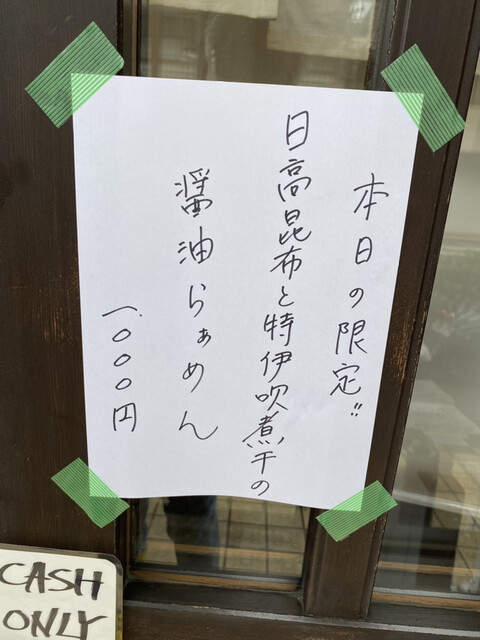 本日の限定!!
日高昆布と特伊吹煮干の
醤油らぁめん
一、〇〇〇円
CASH
ONLY